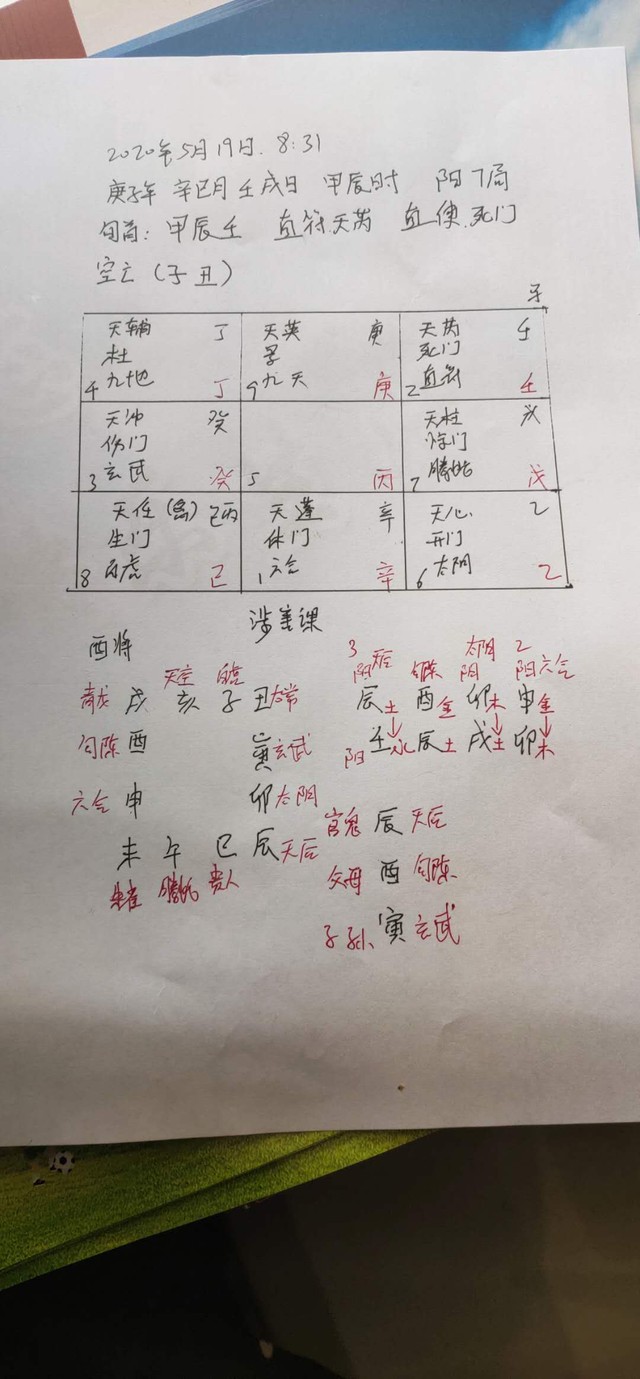 2020年5月19日. 8:31
庚子年 辛巳月 壬戌日 甲辰时 阳7局
旬首: 甲辰壬 直符.天芮 直使.死门
空亡(子丑)
天辅 丁 天英 庚 天芮 壬
杜 景 死门
4 九地 丁 9 九天 庚 2 直符 壬
天冲 癸 天柱 戊
伤门 惊门
3 玄武 癸 5 丙 7 腾蛇 戊
天任(禽) 己丙 天蓬 辛 天心 乙
生门 休门 开门
8 白虎 己 1 六合 辛 6 太阴 乙
涉害课
酉将
天空 白虎 3 阴 天后 勾陈 太阴 阴 2
青龙 戌 亥 子 丑 太常 辰土 酉金 卯木 申金 阳六合
勾陈 酉 寅 玄武 阳 壬水 辰土 戌土 卯木
六合 申 卯 太阴
官鬼 辰 天后
未 午 巳 辰 天后
父母 酉 勾陈
朱雀 腾蛇 贵人
子孙 寅 玄武